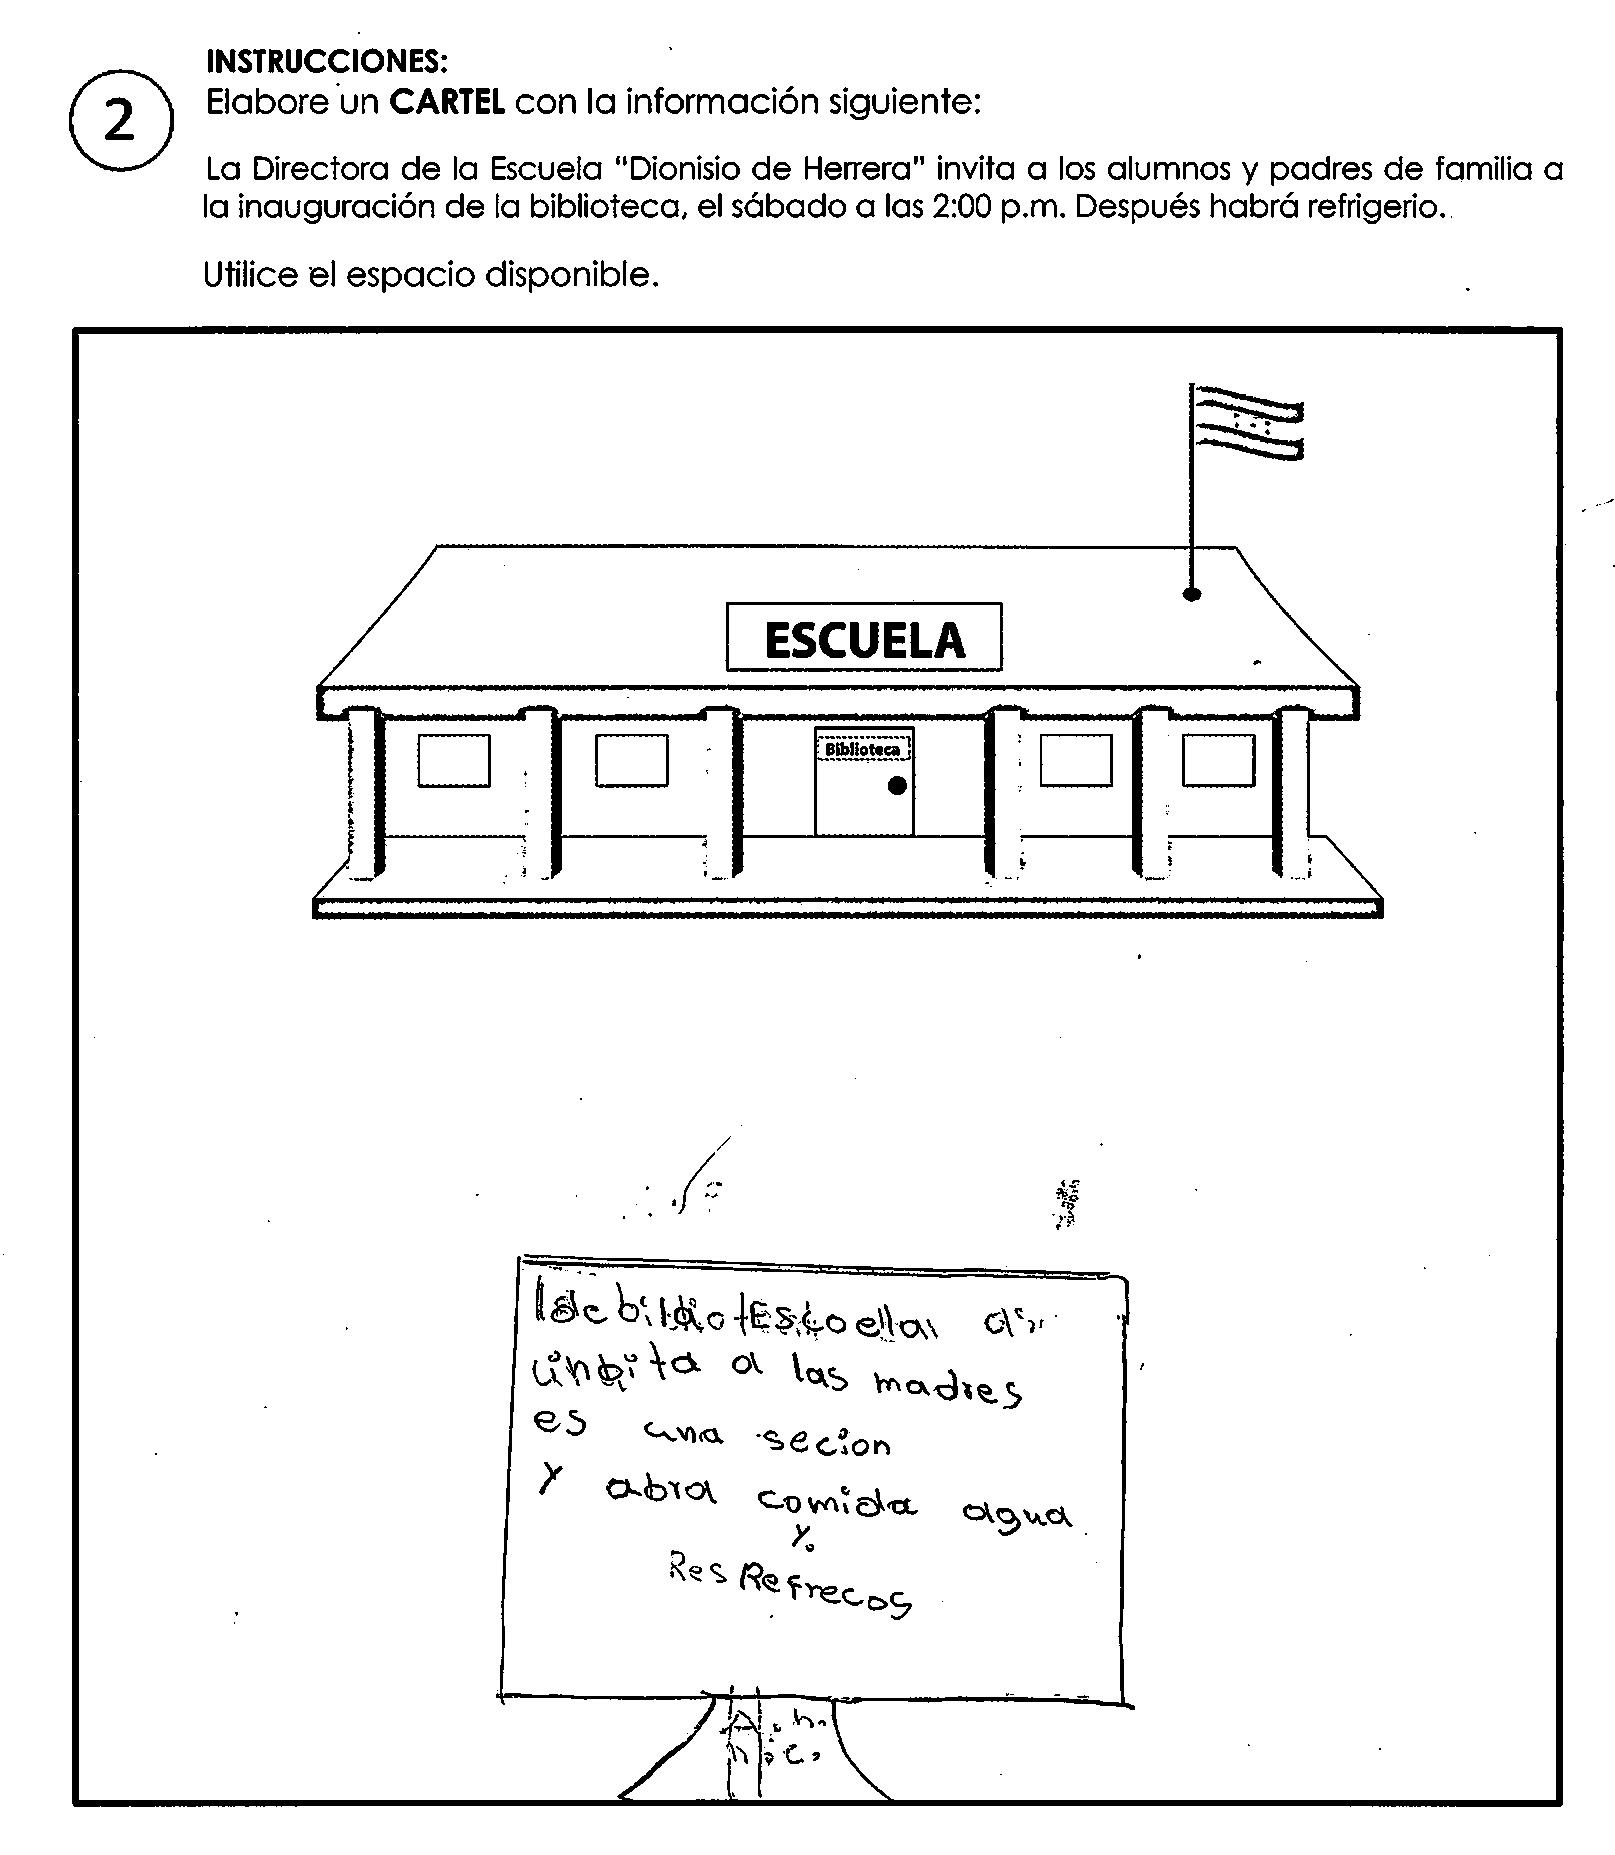 INSTRUCCIONES:
2
Elabore un CARTEL con la información siguiente:
La Directora de la Escuela "Dionisio de Herrera" invita a los alumnos y padres de familia a
la inauguración de la biblioteca, el sábado a las 2:00 p.m. Después habrá refrigerio.
Utilice el espacio disponible.
ESCUELA
Biblioteca
a las madres
es una secion
y abra comida agua
y
Res Refrecos